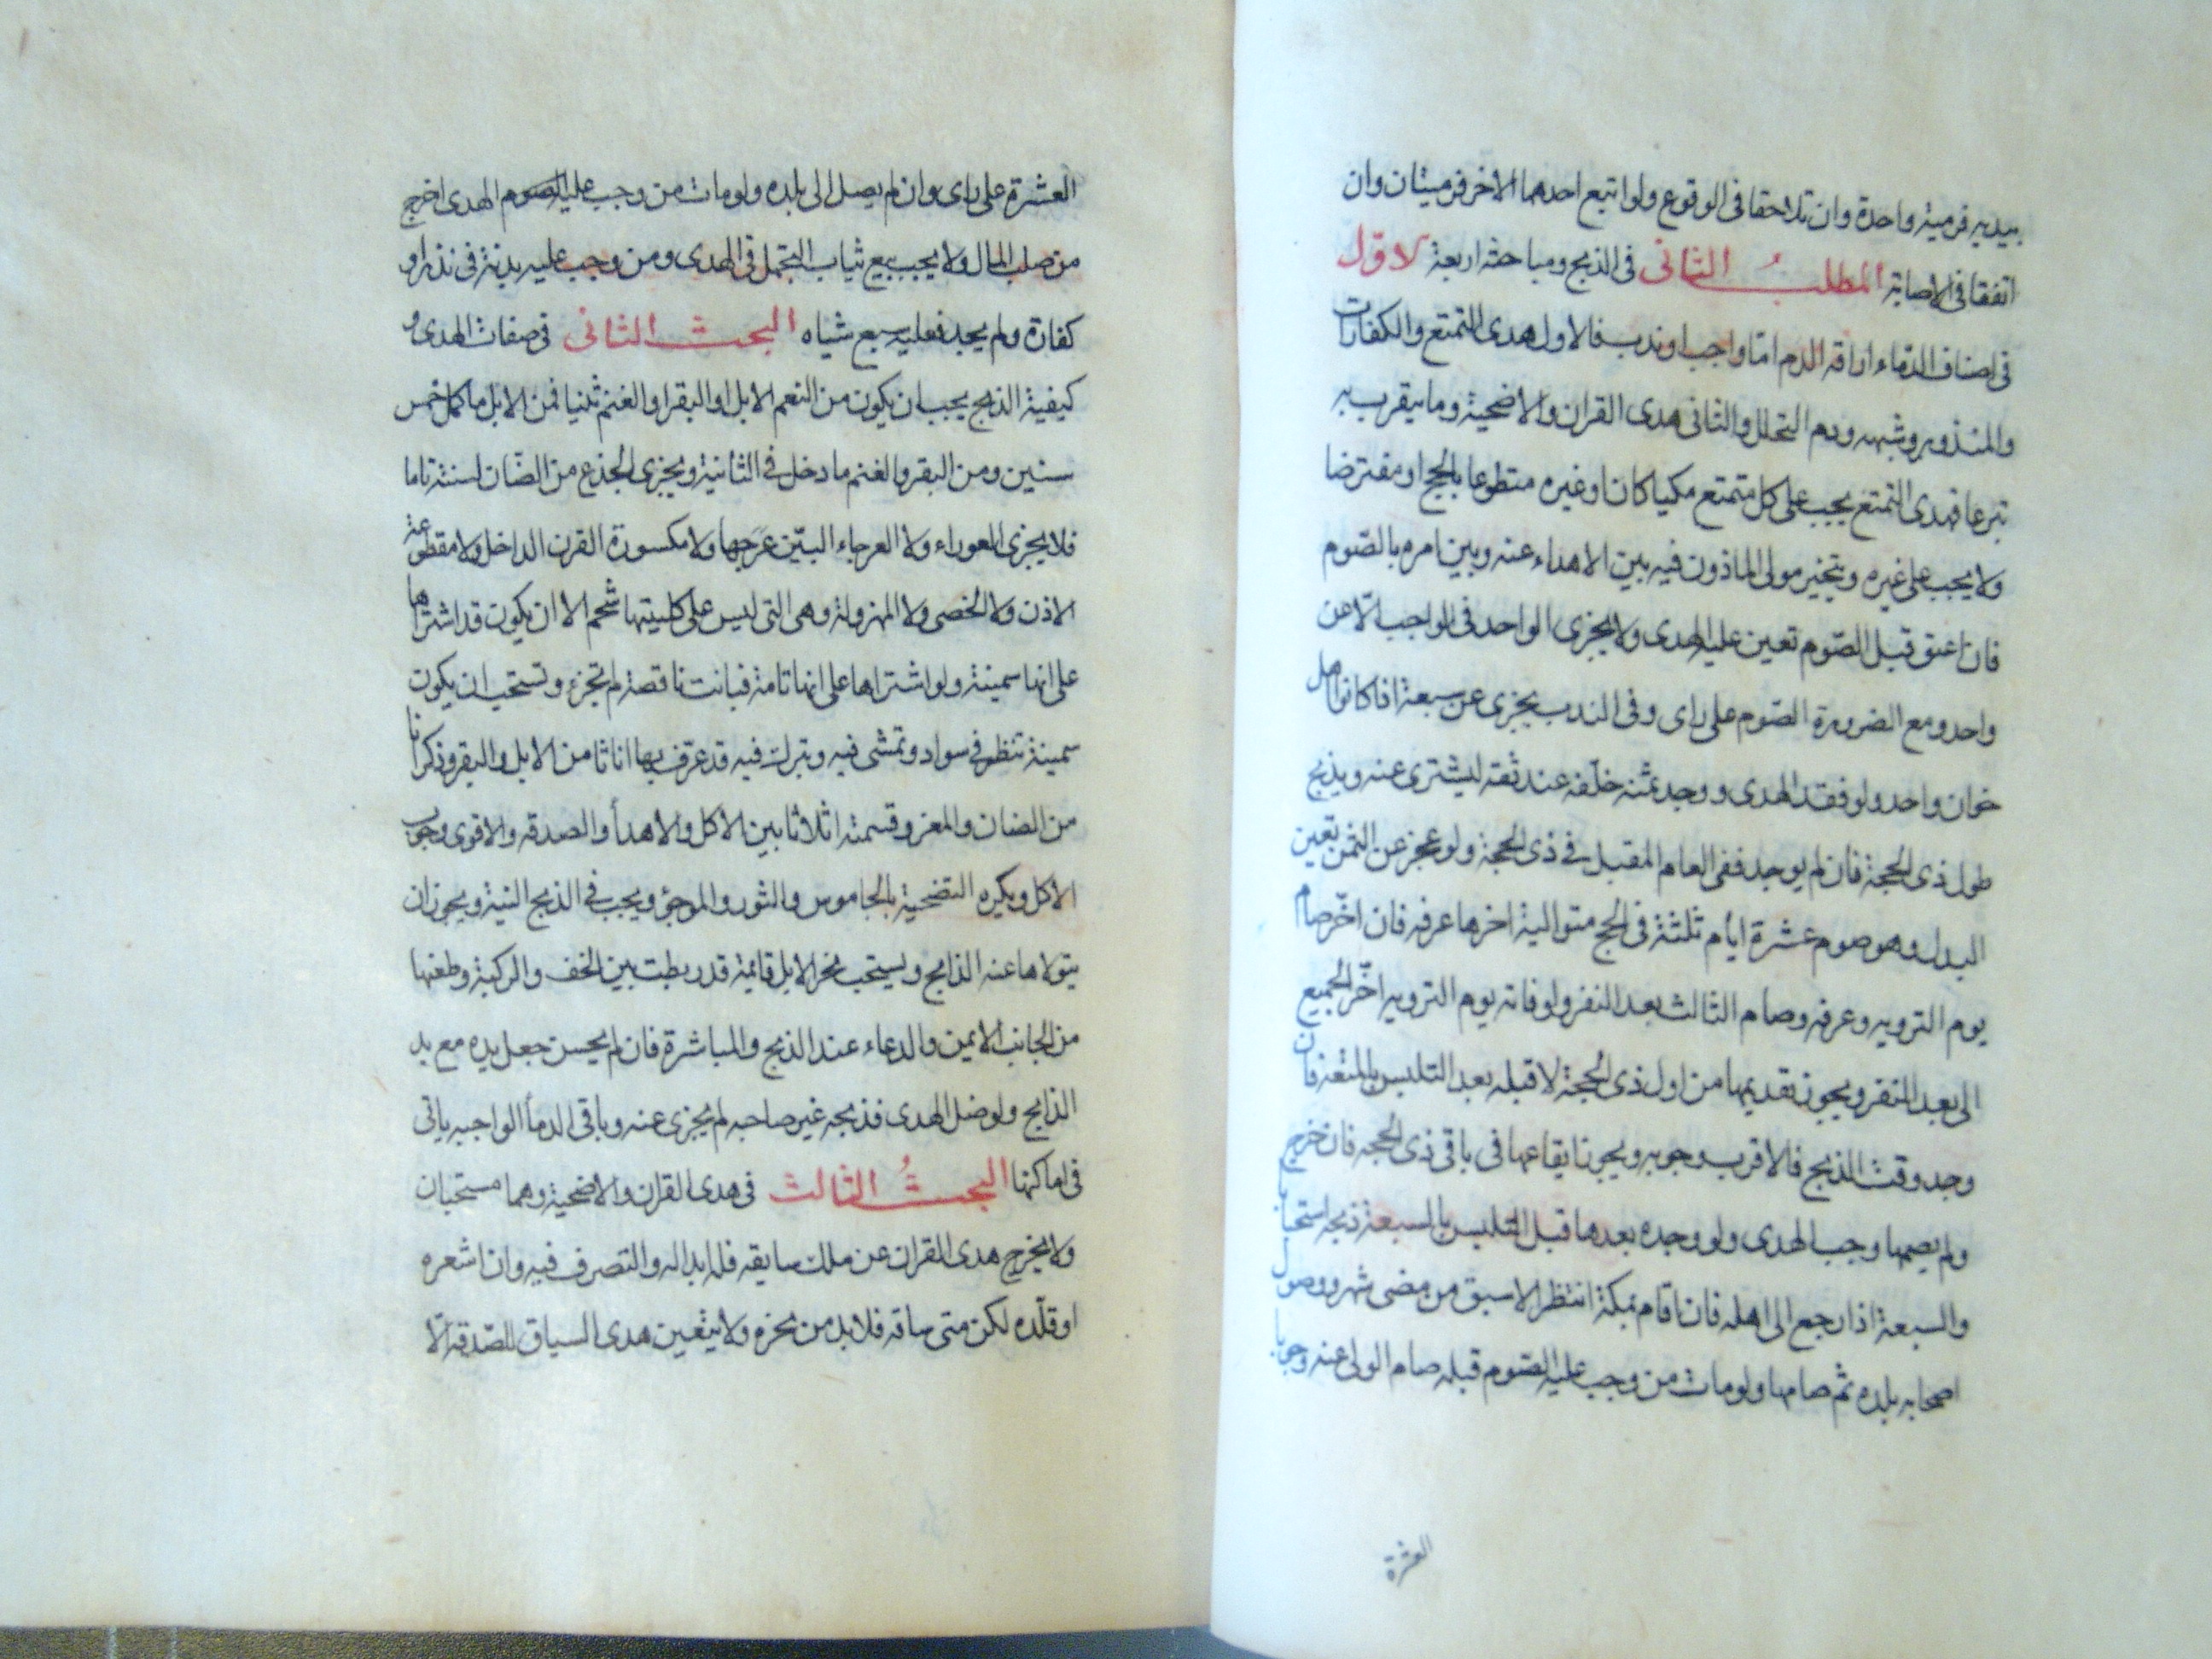 بيديه فرمية واحدة وان تلاحقا فى الوقوع ولو اتبع احدهما الاخر فرميتان وان
اتفقا فى الاصابة المطلب الثانى فى الذبح ومباحثه اربعة الاول
فى اصناف الدماء اراقة الدم اما واجب او ندب فالاول هدى التمتع والكفارات
والمنذور وشبهه ودم التحلل والثانى هدى القران والاضحية وما يتقرب به
تبرعا فهدى التمتع يجب على كل متمتع مكيا كان او غيره متطوعا بالحج او مفترضا
ولا يجب على غيره ويتخير مولى الماذون فيه بين الاهداء عنه وبين امره بالصّوم
فان اعتق قبل الصّوم تعين عليه الهدى ولا يجزى الواحد فى الواجب الّا عن
واحد ومع الضرورة الصّوم على راى وفى الندب يجزى عن سبعة اذا كانوا اهل
خوان واحد ولو فقد الهدى ووجد ثمنه خلّفه عند ثقة ليشترى عنه ويذبح
طول ذى الحجة فان لم يوجد ففى العام المقبل فى ذى الحجة ولو عجز عن الثمن تعين
البدل وهو صوم عشرة ايام ثلثة فى الحج متوالية اخرها عرفه فان اخّر صام
يوم الترويه وعرفه وصام الثالث بعد النفر ولو فاته يوم الترويه اخّر الجميع
الى بعد النفر ويجوز تقديمها من اول ذى الحجة لا قبله بعد التلبس بالمتعة فان
وجد وقت الذبح فالاقرب وجوبه ويجوز ايقاعها فى باقى ذى الحجه فان خرج
ولم يصمها وجب الهدى ولو وجده بعدها قبل التلبس بالسبعة ذبحه استحبابا
والسبعة اذا رجع الى اهله فان اقام بمكة انتظر الاسبق من مضى شهر ووصول
اصحابه بلده ثم صامها ولو مات من وجب عليه الصّوم قبله صام الولى عنه وجوبا
العشرة
العشرة على راى وان لم يصل الى بلده ولو مات من وجب عليه الهدى اخرج
من صلب المال ولا يجب بيع ثياب التجمل فى الهدى ومن وجب عليه بدنة فى نذر او
كفارة ولم يجد فعليه سبع شياه البحث الثانى فى صفات الهدى و
كيفية الذبح يجب ان يكون من النعم الابل او البقر او الغنم ثنيا فمن الابل ما كمل خمس
سنين ومن البقر والغنم ما دخل فى الثانية ويجزى الجذع من الضّان لسنته تاما
فلا يجزى العوراء ولا العرجاء البيّن عرجها ولا مكسورة القرن الداخل ولا مقطوعة
الاذن ولا الخصى ولا المهزولة وهى التى ليس على كليتيها شحم الا ان يكون قد اشتراها
على انها سمينة ولو اشتراها على انها تامة فبانت ناقصة لم تجزء وتستحب ان يكون
سمينة تنظر فى سواد وتمشى فيه وتبرك فيه قد عرّف بها اناثا من الابل والبقر وذكرانا
من الضان والمعز وقسمته اثلاثا بين الاكل والاهدأ والصدقه والاقوى وجوب
الاكل ويكره التضحية بالجاموس والثور والموجؤ ويجب فى الذبح النية ويجوز ان
يتولاها عنه الذابح ويستحب نحر الابل قائمة قد ربطت بين الخف والركبة وطعنها
من الجانب الايمن والدعاء عند الذبح والمباشرة فان لم يحسن جعل يده مع يد
الذابح ولو ضل الهدى فذبحه غير صاحبه لم يجزى عنه وباقى الدمأ الواجبه ياتى
فى اماكنها البحث الثالث فى هدى القران والاضحية وهما مستحبان
ولا يخرج هدى القران عن ملك سايقه فله ابداله والتصرف فيه وان اشعره
او قلّده لكن متى ساقه فلا بد من نحره ولا يتعين هدى السياق للصّدقه الّا